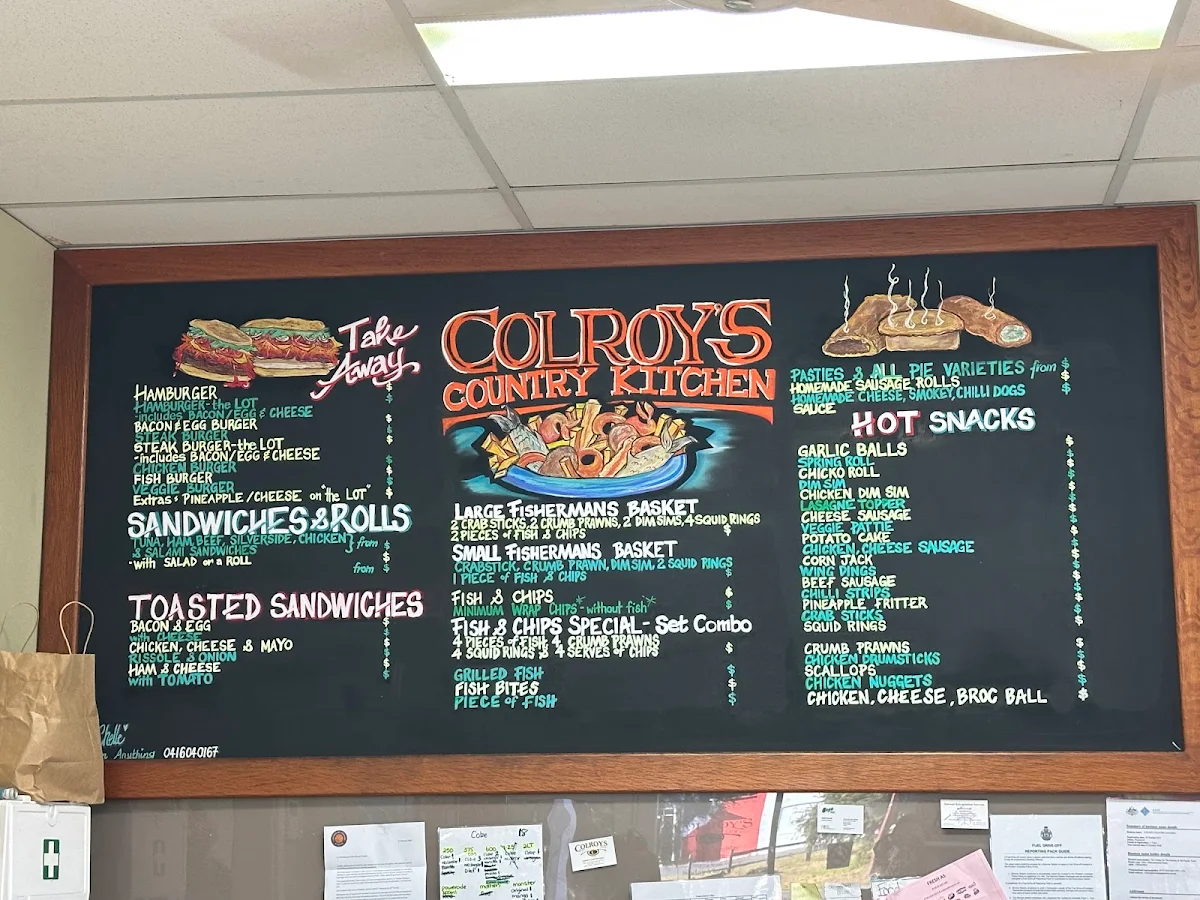 Take
Away
HAMBURGER $
HAMBURGER-the LOT
-includes BACON/EGG & CHEESE $
BACON & EGG BURGER $
STEAK BURGER $
STEAK BURGER-the LOT
-includes BACON/EGG & CHEESE $
CHICKEN BURGER $
FISH BURGER $
VEGGIE BURGER $
Extras: PINEAPPLE/CHEESE on "the LOT" $
SANDWICHES & ROLLS
TUNA, HAM, BEEF, SILVERSIDE, CHICKEN } from $
& SALAMI SANDWICHES
-with SALAD or a ROLL from $
TOASTED SANDWICHES
BACON & EGG $
with CHEESE $
CHICKEN, CHEESE & MAYO $
RISSOLE & ONION $
HAM & CHEESE $
with TOMATO $
Anything 0416040167
COLROY'S
COUNTRY KITCHEN
LARGE FISHERMANS BASKET
2 CRAB STICKS, 2 CRUMB PRAWNS, 2 DIM SIMS, 4 SQUID RINGS
2 PIECES of FISH & CHIPS $
SMALL FISHERMANS BASKET
CRABSTICK, CRUMB PRAWN, DIM SIM, 2 SQUID RINGS
1 PIECE of FISH & CHIPS $
FISH & CHIPS $
MINIMUM WRAP CHIPS *-without fish* $
FISH & CHIPS SPECIAL - Set Combo
4 PIECES of FISH 4 CRUMB PRAWNS
4 SQUID RINGS & 4 SERVES of CHIPS $
GRILLED FISH $
FISH BITES $
PIECE of FISH $
PASTIES & ALL PIE VARIETIES from $
HOMEMADE SAUSAGE ROLLS $
HOMEMADE CHEESE, SMOKEY, CHILLI DOGS $
SAUCE
HOT SNACKS
GARLIC BALLS $
SPRING ROLL $
CHICKO ROLL $
DIM SIM $
CHICKEN DIM SIM $
LASAGNE TOPPER $
CHEESE SAUSAGE $
VEGGIE PATTIE $
POTATO CAKE $
CHICKEN, CHEESE SAUSAGE $
CORN JACK $
WING DINGS $
BEEF SAUSAGE $
CHILLI STRIPS $
PINEAPPLE FRITTER $
CRAB STICKS $
SQUID RINGS $
CRUMB PRAWNS $
CHICKEN DRUMSTICKS $
SCALLOPS $
CHICKEN NUGGETS $
CHICKEN, CHEESE, BROC BALL $
Coke
COLROY'S
FRESH AS
FUEL DRIVE OFF
REPORTING PACK GUIDE